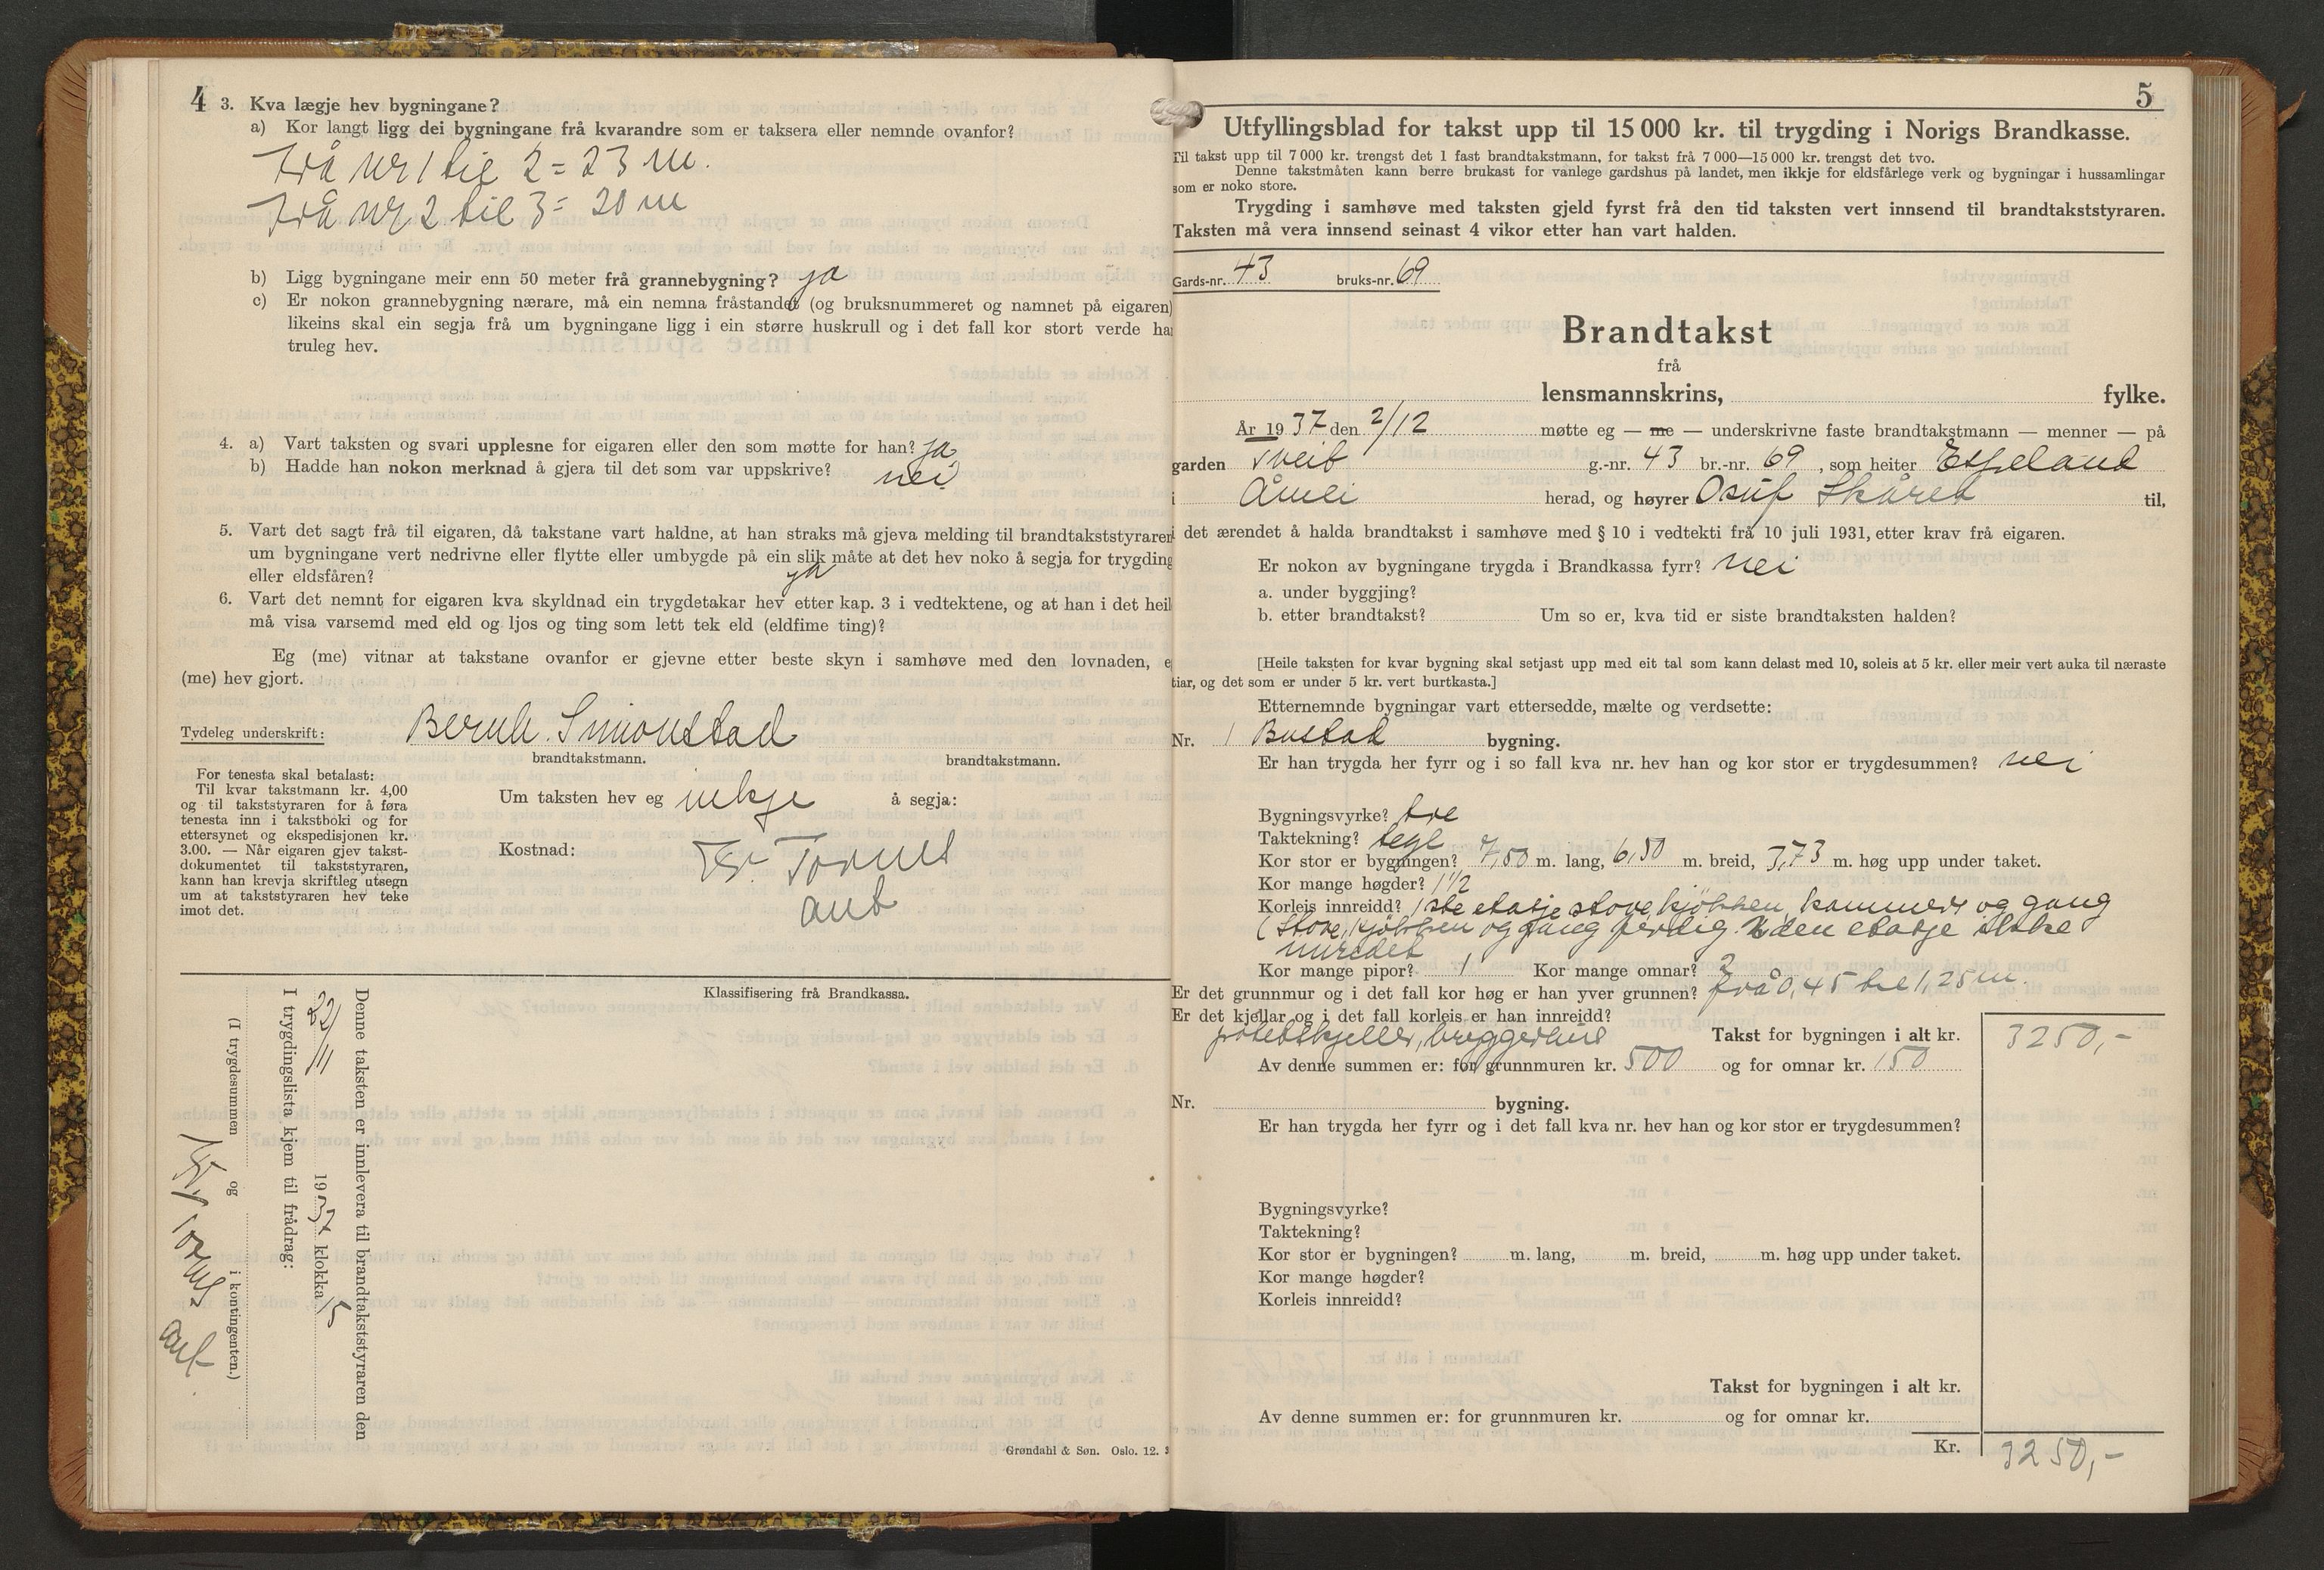 4
3. Kva lægje hev bygningane?
a) Kor langt ligg dei bygningane frå kvarandre som er taksera eller nemnde ovanfor?
Frå nr 1 til 2 = 23 m.
Frå nr 2 til 3 = 20 m
b) Ligg bygningane meir enn 50 meter frå grannebygning? ja
c) Er nokon grannebygning nærare, må ein nemna fråstandet (og bruksnummeret og namnet på eigaren)
likeins skal ein segja frå um bygningane ligg i ein større huskrull og i det fall kor stort verde han
truleg hev.
4. a) Vart taksten og svari upplesne for eigaren eller den som møtte for han? ja
b) Hadde han nokon merknad å gjera til det som var uppskrive? nei
5. Vart det sagt frå til eigaren, då takstane vart haldne, at han straks må gjeva melding til brandtakststyraren
um bygningane vert nedrivne eller flytte eller umbygde på ein slik måte at det hev noko å segja for trygding
eller eldsfåren? ja
6. Vart det nemnt for eigaren kva skyldnad ein trygdetakar hev etter kap. 3 i vedtektene, og at han i det heil
må visa varsemd med eld og ljos og ting som lett tek eld (eldfime ting)?
Eg (me) vitnar at takstane ovanfor er gjevne etter beste skyn i samhøve med den lovnaden, e
(me) hev gjort.
Tydeleg underskrift: Bernh. Simonstad
brandtakstmann. brandtakstmann.
For tenesta skal betalast:
Til kvar takstmann kr. 4,00
og til takststyraren for å føra
tenesta inn i takstboki og for
ettersynet og ekspedisjonen kr.
3.00. — Når eigaren gjev takst-
dokumentet til takststyraren,
kann han krevja skriftleg utsegn
um at takststyraren hev teke
imot det.
Um taksten hev eg inkje å segja:
Kostnad:
Tornes
aut
Klassifisering frå Brandkassa.
Denne taksten er innlevera til brandtakststyraren den
22/11 1937 klokka 15
I trygdingslista kjem til frådrag:
(I trygdesummen og i kontingenten.)
Tornes aut
Grøndahl & Søn. Oslo. 12. 3
5
Utfyllingsblad for takst upp til 15 000 kr. til trygding i Norigs Brandkasse.
Til takst upp til 7 000 kr. trengst det 1 fast brandtakstmann, for takst frå 7 000—15 000 kr. trengst det tvo.
Denne takstmåten kann berre brukast for vanlege gardshus på landet, men ikkje for eldsfårlege verk og bygningar i hussamlingar
som er noko store.
Trygding i samhøve med taksten gjeld fyrst frå den tid taksten vert innsend til brandtakststyraren.
Taksten må vera innsend seinast 4 vikor etter han vart halden.
Gards-nr. 43 bruks-nr. 69
Brandtakst
frå
lensmannskrins, fylke.
År 1937 den 2/12 møtte eg — me — underskrivne faste brandtakstmann — menner — på
garden Tveit g.-nr. 43 br.-nr. 69, som heiter Espeland
i Åmli herad, og høyrer Osuf Skåret til,
i det ærendet å halda brandtakst i samhøve med § 10 i vedtekti frå 10 juli 1931, etter krav frå eigaren.
Er nokon av bygningane trygda i Brandkassa fyrr? nei
a. under byggjing?
b. etter brandtakst? Um so er, kva tid er siste brandtaksten halden?
[Heile taksten for kvar bygning skal setjast upp med eit tal som kann delast med 10, soleis at 5 kr. eller meir vert auka til næraste
tiar, og det som er under 5 kr. vert burtkasta.]
Etternemnde bygningar vart ettersedde, mælte og verdsette:
Nr. 1 Bustad bygning.
Er han trygda her fyrr og i so fall kva nr. hev han og kor stor er trygdesummen? nei
Bygningsvyrke? tre
Taktekning? tegl
Kor stor er bygningen? 7,50 m. lang, 6,50 m. breid, 3,73 m. høg upp under taket.
Kor mange høgder? 1 1/2
Korleis innreidd? 1ste etasje stove, kjökken, kammers og gang
(Stove, kjökken og gang ferdig. 2den etasje ikke
inredet
Kor mange pipor? 1 Kor mange omnar? 2
Er det grunnmur og i det fall kor høg er han yver grunnen? frå 0,45 til 1,25 m.
Er det kjøllar og i det fall korleis er han innreidd?
potetskjeller, bryggerhus Takst for bygningen i alt kr. 3250,-
Av denne summen er: for grunnmuren kr. 500 og for omnar kr. 150
Nr. bygning.
Er han trygda her fyrr og i det fall kva nr. hev han og kor stor er trygdesummen?
Bygningsvyrke?
Taktekning?
Kor stor er bygningen? m. lang, m. breid, m. høg upp under taket.
Kor mange høgder?
Korleis innreidd?
Takst for bygningen i alt kr.
Av denne summen er: for grunnmuren kr. og for omnar kr.
Kr. 3250,-